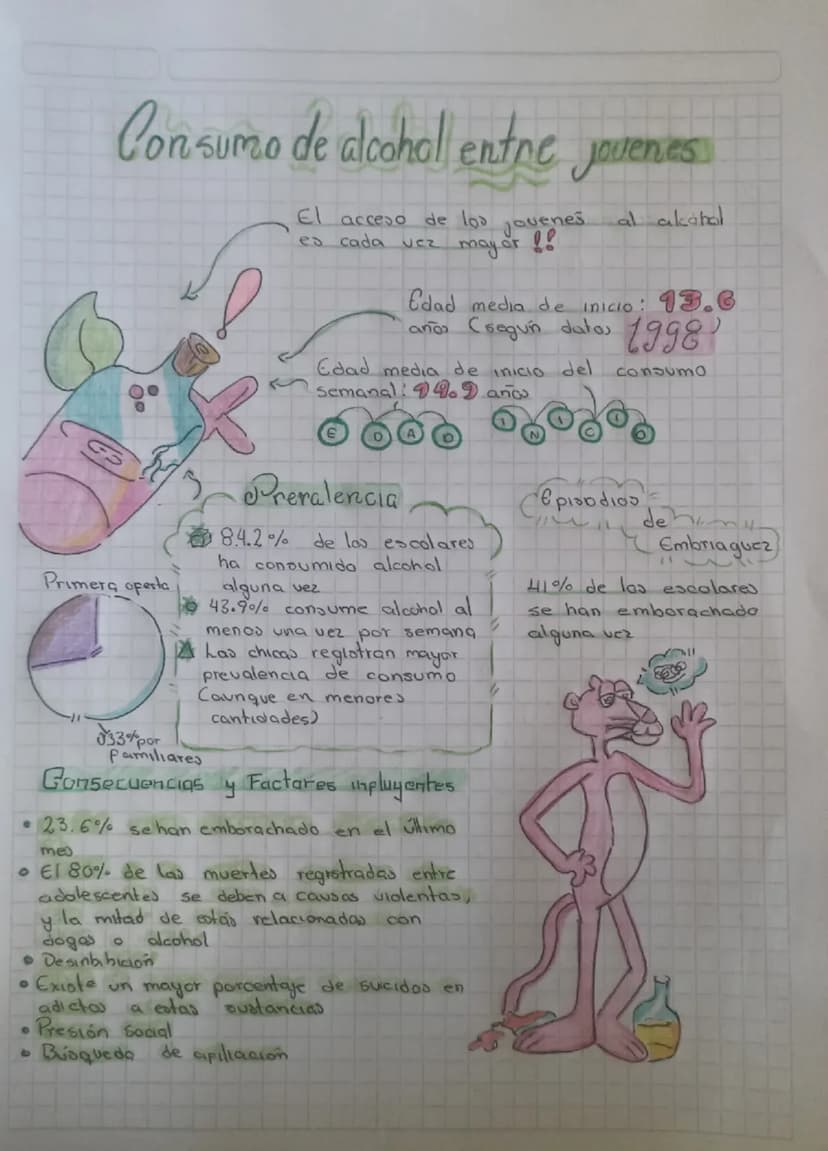 Consumo de alcohol entre jovenes
El acceso de los jovenes al alcohol
es cada vez mayor !!
Edad media de inicio: 13.6
años (según datos 1998)
Edad media de inicio del consumo
semanal: 14.9 años
EDAD INICIO
Prevalencia
84.2% de los escolares
ha consumido alcohol
alguna vez
43.9% consume alcohol al
menos una vez por semana
Las chicas registran mayor
prevalencia de consumo
(aunque en menores
cantidades)
Episodios
de
Embriaguez
41% de los escolares
se han emborachado
alguna vez
Primera oferta
33% por
familiares
Consecuencias y Factores influyentes
• 23.6% se han emborachado en el último
mes
• El 80% de las muertes registradas entre
adolescentes se deben a causas violentas,
y la mitad de estás relacionadas con
dogas o alcohol
• Desinhibición
• Existe un mayor porcentaje de suicidos en
adictos a estas sustancias
• Presión social
• Búsqueda de afiliación